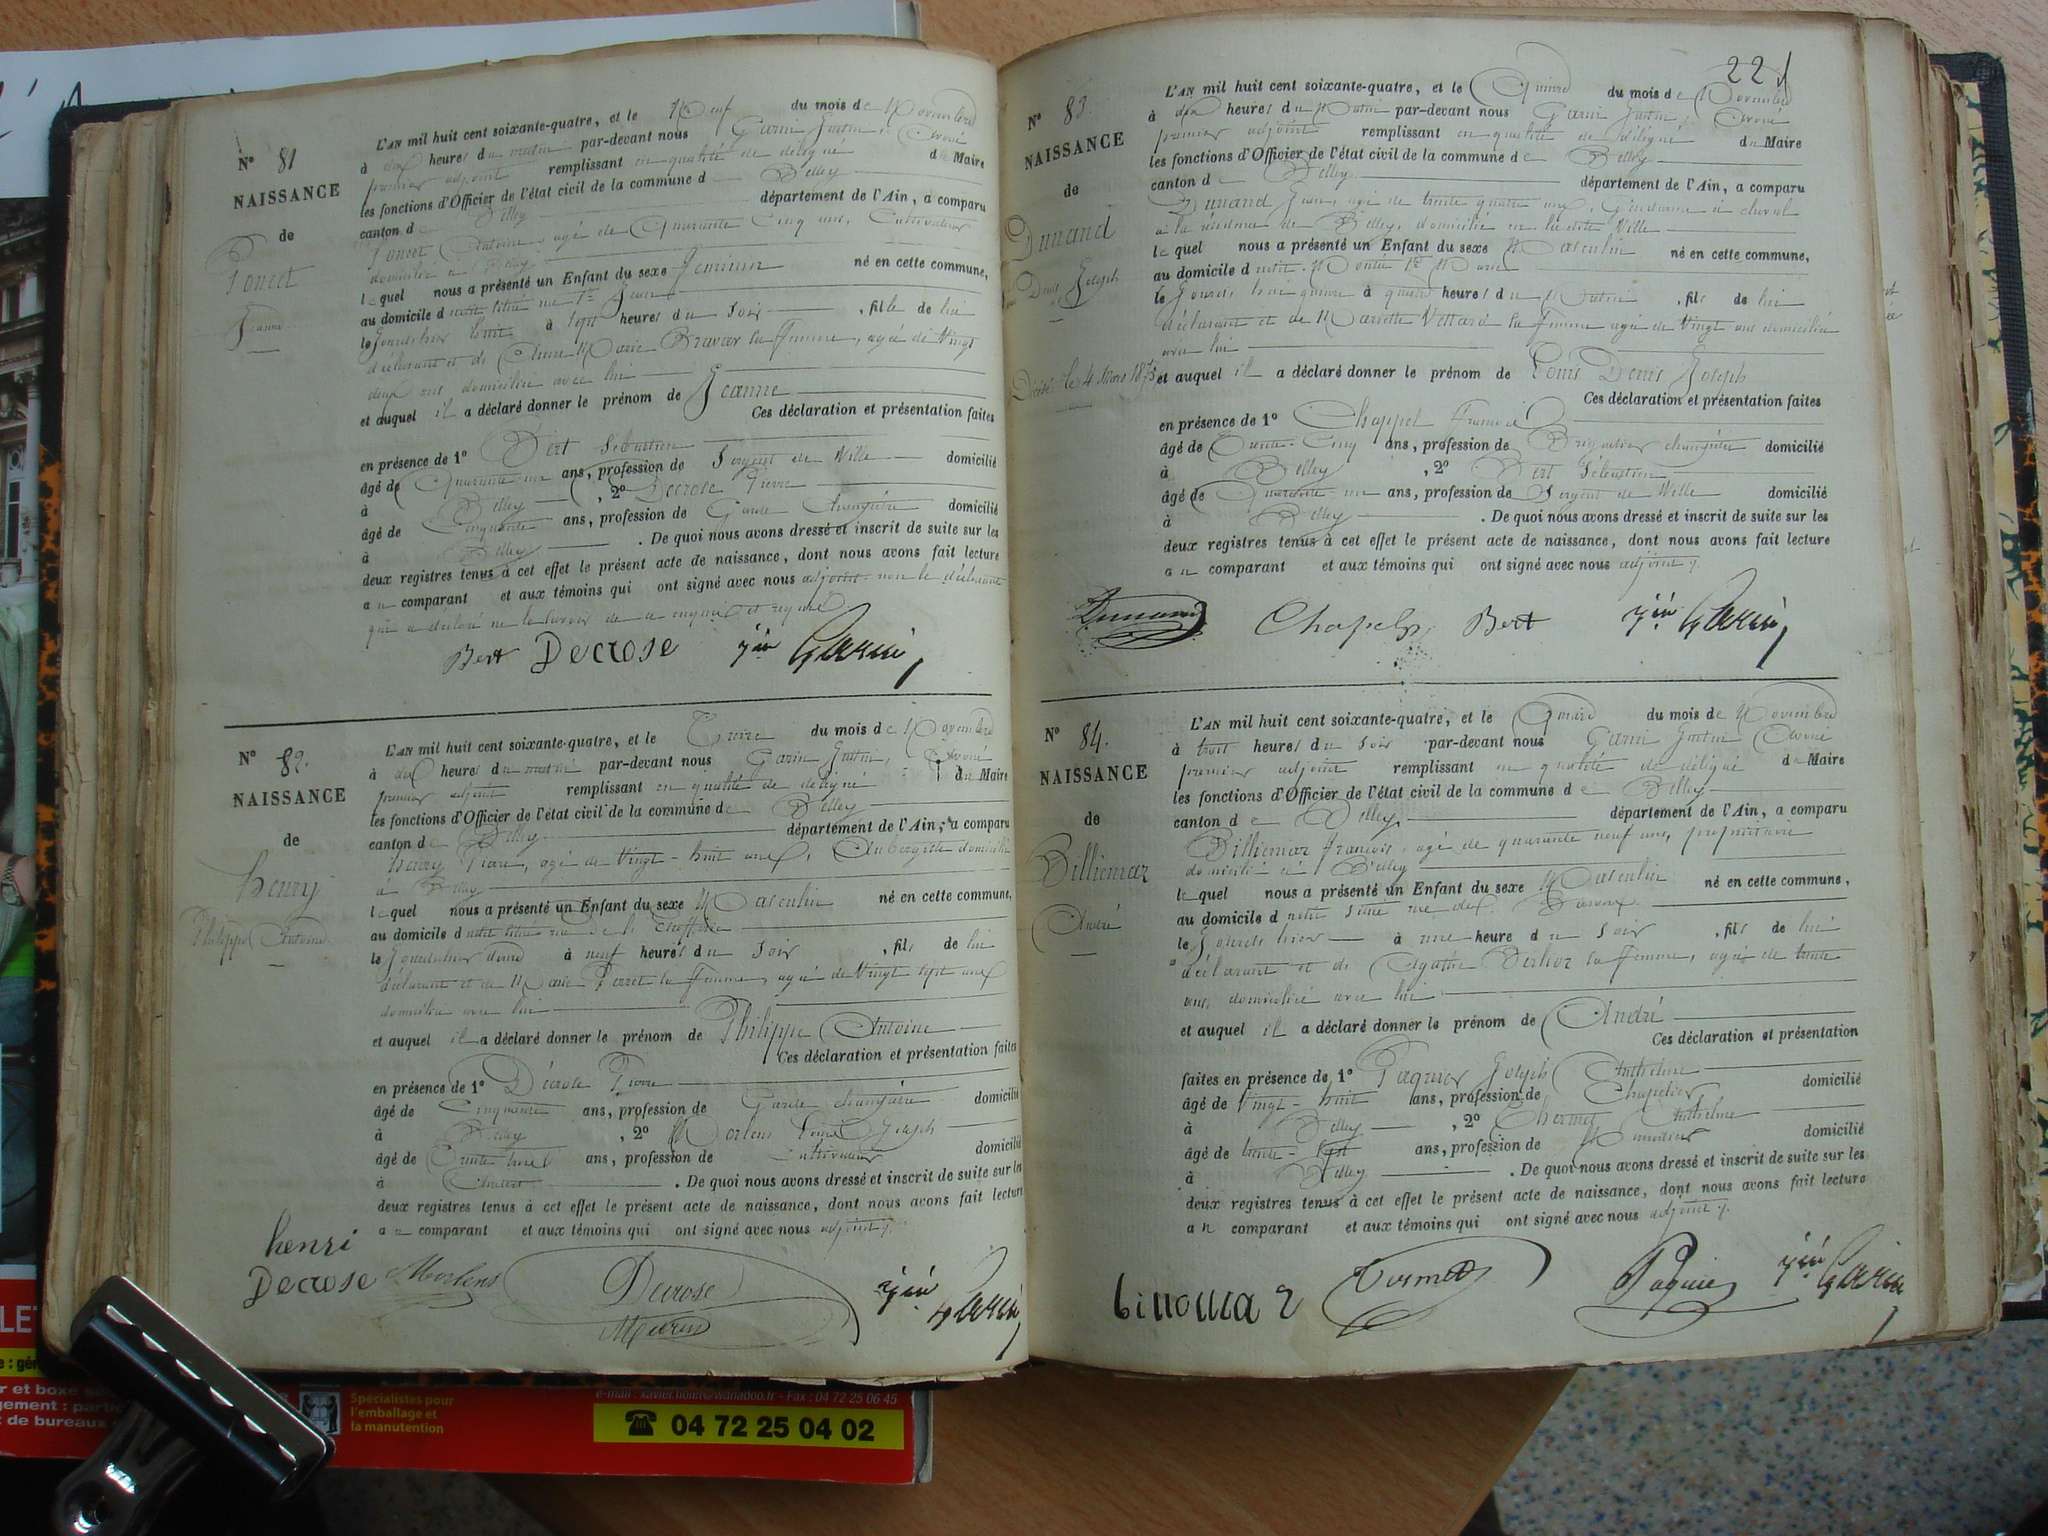 N° 81
NAISSANCE
de
Poncet
Jeanne
L'AN mil huit cent soixante-quatre, et le Neuf du mois de Novembre
à dix heures du matin par-devant nous Garin Justin, Avoué
premier adjoint remplissant en qualité de délégué du Maire
les fonctions d'Officier de l'état civil de la commune de Belley
canton de Belley département de l'Ain, a comparu
Poncet Antoine, agé de Quarante Cinq ans, Cultivateur
domicilié à Belley
lequel nous a présenté un Enfant du sexe féminin né en cette commune,
au domicile d
le jourd'hier à sept heures du soir , fille de lui
déclarant et de Anne Marie Bravais sa femme, agée de Vingt
deux ans domiciliée avec lui
et auquel il a déclaré donner le prénom de Jeanne
Ces déclaration et présentation faites
en présence de 1° Bert Sébastien
âgé de Quarante un ans, profession de Sergent de Ville domicilié
à Belley , 2° Decrose Pierre
âgé de Cinquante ans, profession de Garde Champêtre domicilié
à Belley . De quoi nous avons dressé et inscrit de suite sur les
deux registres tenus à cet effet le présent acte de naissance, dont nous avons fait lecture
au comparant et aux témoins qui ont signé avec nous adjoint non le déclarant
qui a déclaré ne le savoir de ce enquis et requis
Bert Decrose Jin Garin
N° 82.
NAISSANCE
de
henry
Philippe Antoine
L'AN mil huit cent soixante-quatre, et le Treize du mois de Novembre
à dix heures du matin par-devant nous Garin Justin, Avoué
premier adjoint remplissant en qualité de délégué du Maire
les fonctions d'Officier de l'état civil de la commune de Belley
canton de Belley département de l'Ain, a comparu
henry Pierre, agé de Vingt-huit ans, Aubergiste domicilié
à Belley
lequel nous a présenté un Enfant du sexe Masculin né en cette commune,
au domicile d
le jourd'hier douze à neuf heures du soir , fils de lui
déclarant et de Marie Perret sa femme, agée de Vingt sept ans
domiciliée avec lui
et auquel il a déclaré donner le prénom de Philippe Antoine
Ces déclaration et présentation faites
en présence de 1° Décrose Pierre
âgé de Cinquante ans, profession de Garde champêtre domicilié
à Belley , 2° Morlens Joseph
âgé de Trente ans, profession de Cultivateur domicilié
à . De quoi nous avons dressé et inscrit de suite sur les
deux registres tenus à cet effet le présent acte de naissance, dont nous avons fait lecture
au comparant et aux témoins qui ont signé avec nous adjoint
henri
Decrose Morlens Decrose Jin Garin
22
N° 83.
NAISSANCE
de
Dunand
Louis Denis Joseph
Décédé le 4 Mars 1875
L'AN mil huit cent soixante-quatre, et le Quinze du mois de Novembre
à dix heures du Matin par-devant nous Garin Justin, Avoué
premier adjoint remplissant en qualité de délégué du Maire
les fonctions d'Officier de l'état civil de la commune de Belley
canton de Belley département de l'Ain, a comparu
Dunand Jean, agé de trente quatre ans, Gendarme à cheval
à la résidence de Belley, domicilié en ladite Ville
lequel nous a présenté un Enfant du sexe Masculin né en cette commune,
au domicile d
le Jourd'hui quinze à quatre heures du Matin , fils de lui
déclarant et de Mariette Villard sa femme agée de Vingt ans domiciliée
avec lui
et auquel il a déclaré donner le prénom de Louis Denis Joseph
Ces déclaration et présentation faites
en présence de 1° Chappel
âgé de Trente-Cinq ans, profession de Brigadier champêtre domicilié
à Belley , 2° Bert Sébastien
âgé de Quarante un ans, profession de Sergent de Ville domicilié
à Belley . De quoi nous avons dressé et inscrit de suite sur les
deux registres tenus à cet effet le présent acte de naissance, dont nous avons fait lecture
au comparant et aux témoins qui ont signé avec nous adjoint
Dunand Chapel Bert Jin Garin
N° 84.
NAISSANCE
de
Billiemaz
André
L'AN mil huit cent soixante-quatre, et le Quinze du mois de Novembre
à trois heures du soir par-devant nous Garin Justin Avoué
premier adjoint remplissant en qualité de délégué du Maire
les fonctions d'Officier de l'état civil de la commune de Belley
canton de Belley département de l'Ain, a comparu
Billiemaz François, agé de quarante neuf ans, propriétaire
domicilié à Belley
lequel nous a présenté un Enfant du sexe Masculin né en cette commune,
au domicile d
le Jourd'hier à une heure du soir , fils de lui
déclarant et de Agathe sa femme, agée de trente
ans, domiciliée avec lui
et auquel il a déclaré donner le prénom de André
Ces déclaration et présentation
faites en présence de 1° Paquier Joseph Anthelme
âgé de Vingt-huit ans, profession de Chapelier domicilié
à Belley , 2° Anthelme
âgé de trente-sept ans, profession de domicilié
à Belley . De quoi nous avons dressé et inscrit de suite sur les
deux registres tenus à cet effet le présent acte de naissance, dont nous avons fait lecture
au comparant et aux témoins qui ont signé avec nous adjoint
Paquier Jin Garin
Spécialistes pour
l'emballage et
la manutention
Fax : 04 72 25 06 45
04 72 25 04 02